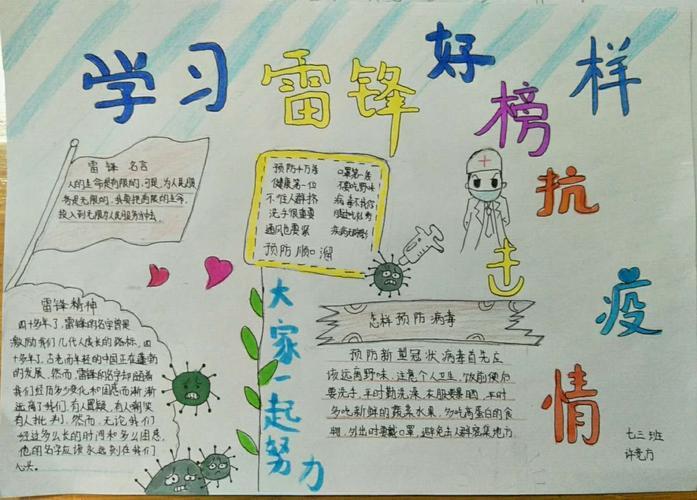 学习雷锋好榜样
抗击疫情
雷锋 名言
人的生命是有限的,可是,为人民服
务是无限的,我要把有限的生命,
投入到无限为人民服务中去。
预防十万条 口罩第一条
健康第一位 不要吃野味
不往人群挤
洗手很重要
通风也要紧
预防顺口溜
大家一起努力
怎样预防病毒
预防新型冠状病毒首先应
该远离野味,注意个人卫生,饭前便后
要洗手,平时勤洗澡,衣服要晒晒,平时
多吃新鲜的蔬菜水果,多吃高蛋白的食
物,外出时要戴口罩,避免去人群密集地方
雷锋精神
四十多年了,雷锋的名字曾是
激励我们几代人成长的路标,四
十多年,古老而年轻的中国正在蓬勃
的发展,然而,雷锋的名字却随着
我们经历多少变化和困惑而渐渐
远离了我们,有人置疑,有人嘲笑
有人批判,然而,无论我们
经过多么长的时间和多么困惑,
他的名字应该永远刻在我们
心头。
七三班
许竞方